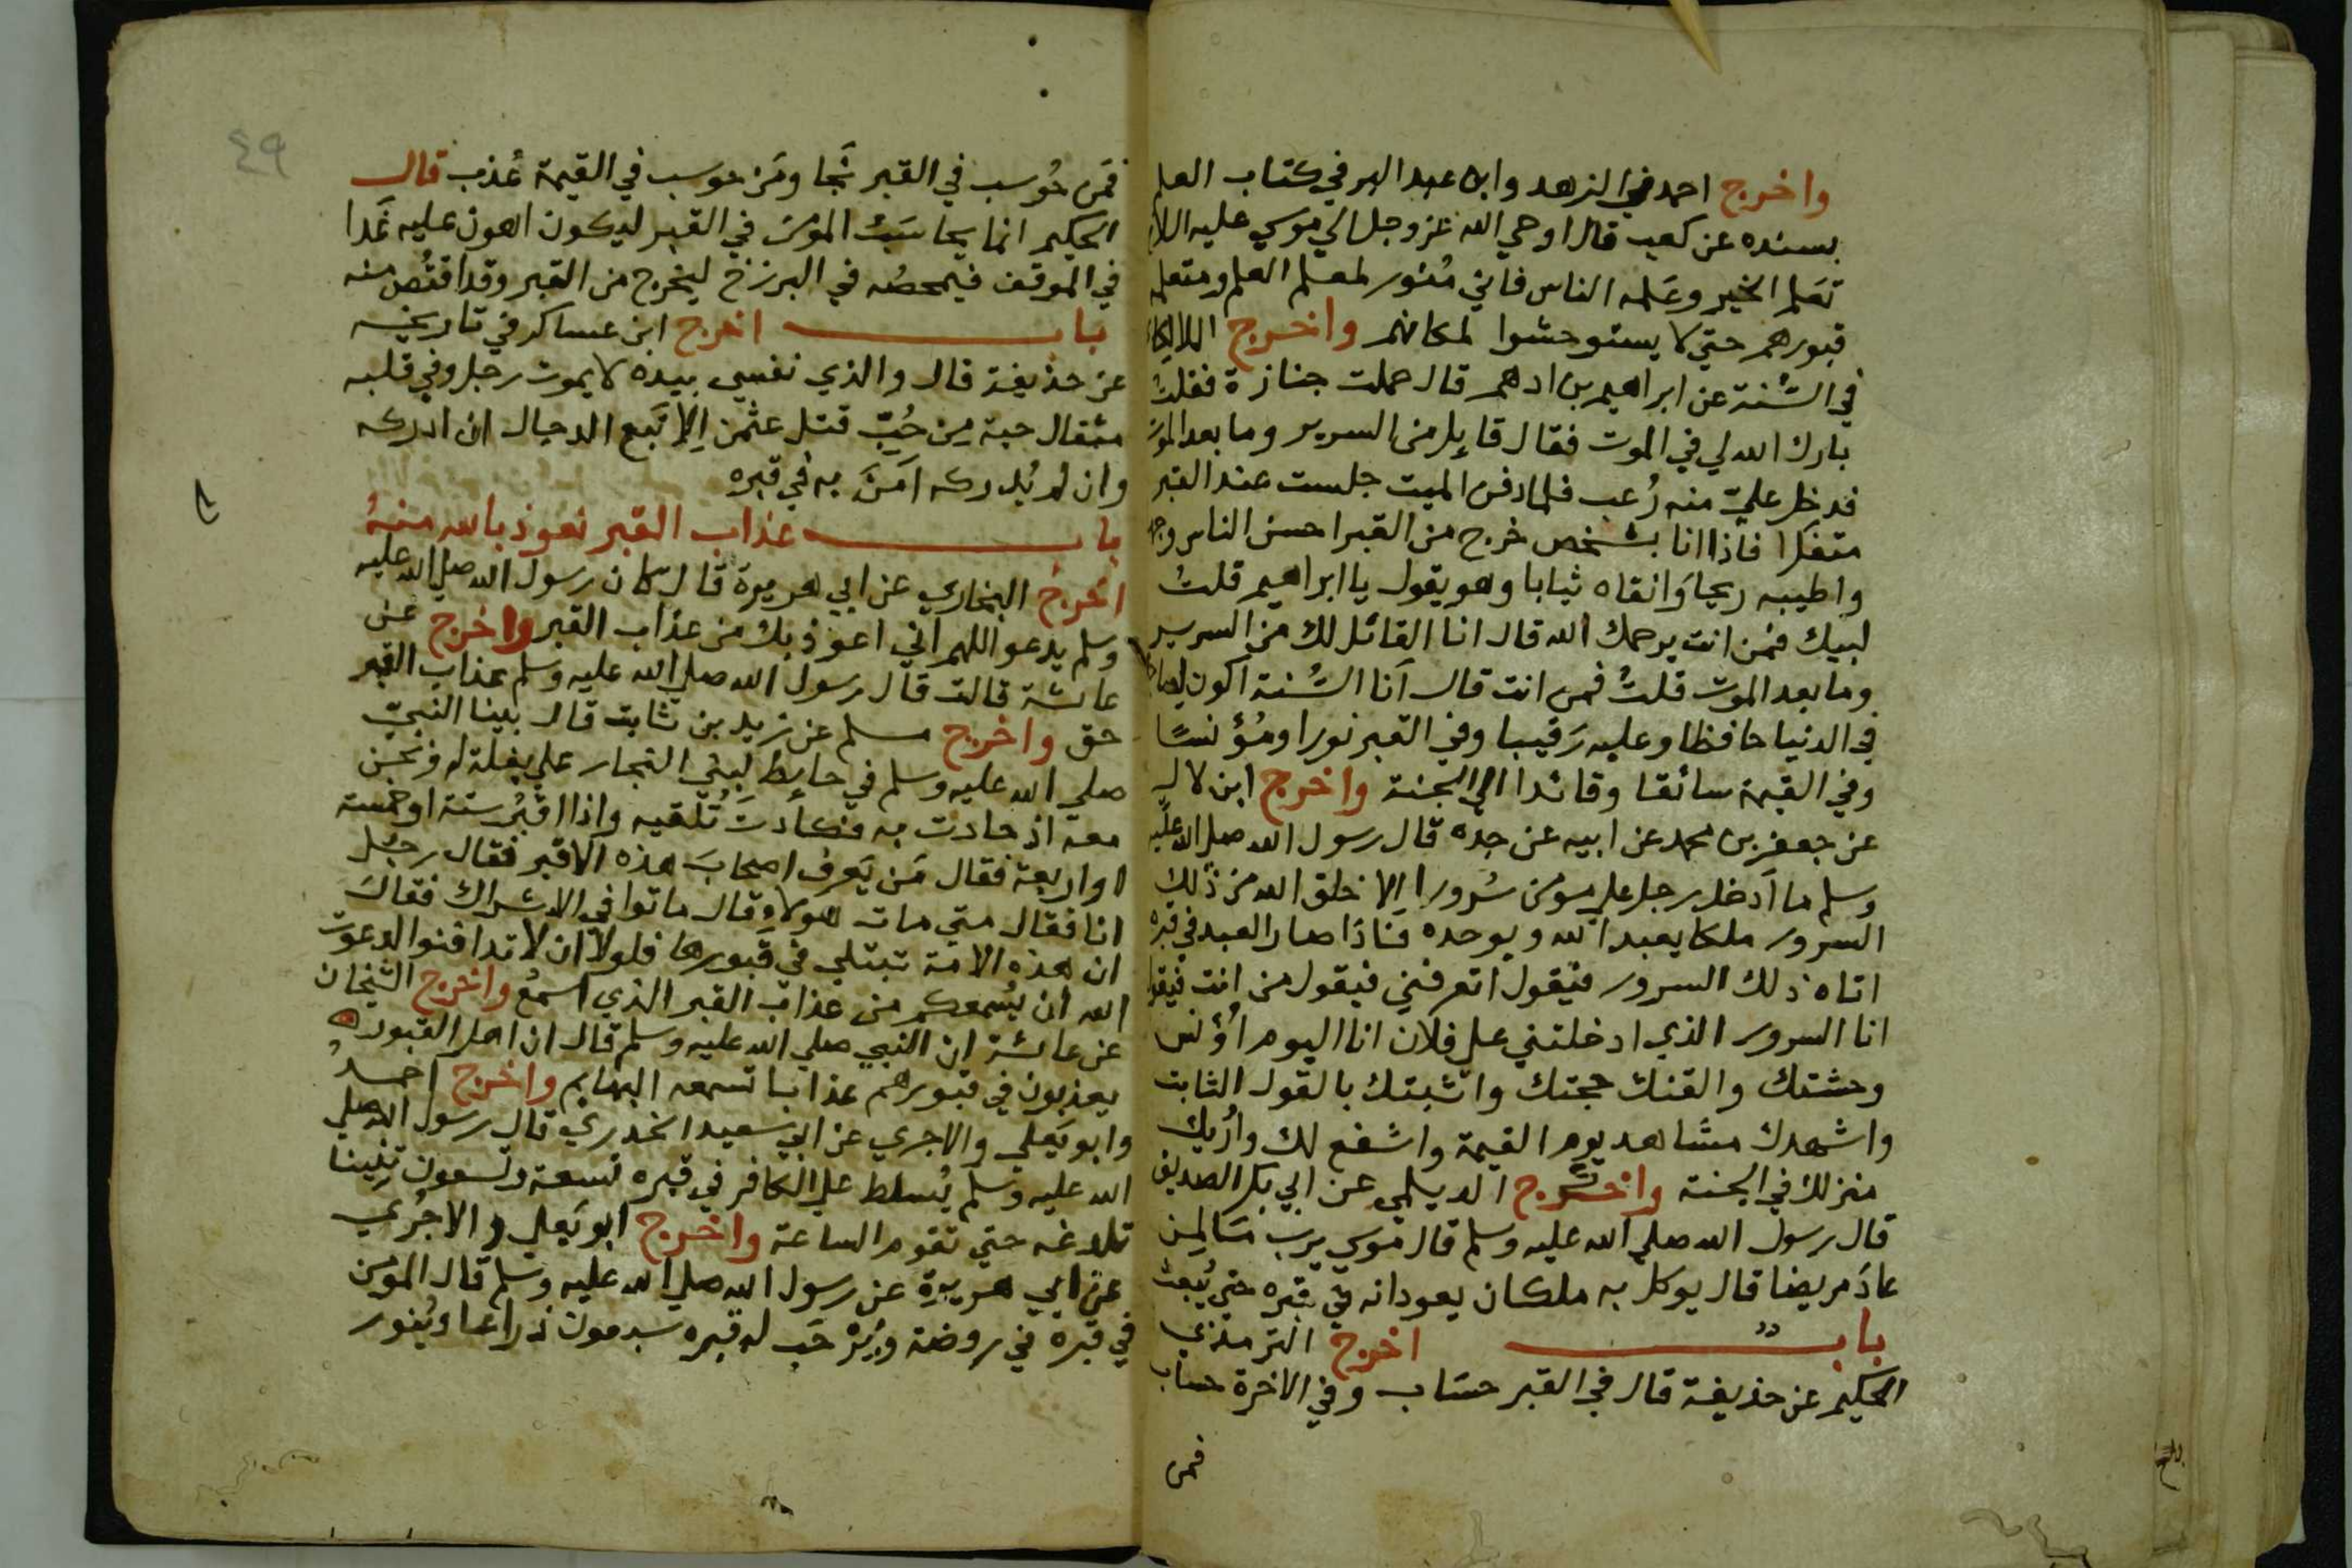 واخرج احمد في الزهد وابن عبد البر في كتاب العلم
بسنده عن كعب قال اوحي الله عز وجل الي موسي عليه السلام
تعَلم الخير وعَلمه الناس فاني مُنَور لمعلم العلم ومتعلمه
قبورهم حتي لا يستوحشوا لمكانهم واخرج اللالكاي
في السُنة عن ابراهيم بن ادهم قال حملت جنازة فقلتُ
بارك الله لي في الموت فقال قايل من السرير وما بعد الموت
فدخل عليّ منه رُعب فلما دفن الميت جلست عند القبر
متفكرا فاذا انا بشخص خرج من القبر احسن الناس وجه
واطيبه ريحا وَانقاه ثيابا وهو يقول يا ابراهيم قلتُ
لبيك فمن انت يرحمك الله قال انا القائل لك من السرير
وما بعد الموت قلتُ فمن انت قال اَنا السُنة اكون لصاحبي
في الدنيا حافظا وعليه رَقيبا وفي القبر نورا ومُؤنسًا
وفي القيمة سائقا وقائدا الي الجنة واخرج ابن لال
عن جعفر بن محمد عن ابيه عن جده قال رسول الله صلي الله عليه
وسلم ما اَدخل رجل علي مومن سُرورا اِلا خلق الله من ذلك
السرور ملكا يعبد الله ويوحده فاذا صار العبد في قبره
اتاه ذلك السرور فيقول اتعرفني فيقول من انت فيقول
انا السرور الذي ادخلتني علي فلان انا اليوم اُؤنس
وحشتك والقنك حجتك واثبتك بالقول الثابت
واشهدك مشاهد يوم القيمة واشفع لك واُريك
منزلك في الجنة واخرج الديلمي عن ابي بكر الصديق
قال رسول الله صلي الله عليه وسلم قال موسي يرب مَا لمن
عادَ مريضا قال يوكل به ملكان يعودانه في قبره حتي يُبعث
باب اخرج الترمذي
الحكيم عن حذيفة قال في القبر حسَاب وفي الاخرة حساب
فمن
٤٩
فمَن حُوسب في القبر نَجَا ومَن حوسب في القيمة عُذب قال
الحكيم انما يحاسَبُ المومن في القبر ليكون اهون عليه غَدا
في الموقف فيمحصُه في البرزخ ليخرج من القبر وقد اقتُص منه
باب اخرج ابن عساكر في تاريخه
عن حذيفة قال والذي نفسي بيده لا يموت رجل وفي قلبه
مثقال حبة من حُبّ قتل عثمن اِلا تَبع الدجال ان ادركه
وان لم يُدركه اَمَنَ به في قبره
باب عذاب القبر نعوذ بالله منهُ
اخرج البخاري عن ابي هريرة قال كان رسول الله صلي الله عليه
وسلم يدعو اللهم اني اعوذ بك من عذاب القبر واخرج عن
عائشة قالت قال رسول الله صلي الله عليه وسلم عذاب القبر
حق واخرج مسلم عن زيد بن ثابت قال بينا النبيّ
صلي الله عليه وسلم في حايط لبني النجار علي بغلة له ونحن
معه اذ حادت به فكادتَ تُلقيه واذا اقبُر ستة او خمسة
او اربعة فقال مَن يَعرف اصحابَ هذه الاقبر فقال رجل
انا فقال متي مات هولا وقال ماتوا في الاشراك فقالَ
ان هذه الامة تبتلي في قبورها فلولا ان لا تدافنوا لدعوت
الله ان يُسمعكم من عذاب القبر الذي اسمعُ واخرج الشيخان
عن عائشة ان النبي صلي الله عليه وسلم قال ان اهل القبور
يعذبون في قبورهم عذابا تسمعه البهايم واخرج احمدُ
وابو يَعلي والاجري عن ابي سعيد الخدري قال رسول الله صلي
الله عليه وسلم يُسلط علي الكافر في قبره تسعة وتسعون تِنّينا
تلدغه حتي تقوم الساعة واخرج ابو يَعلي والاجُري
عن ابي هريرة عن رسول الله صلي الله عليه وسلم قال المومن
في قبره في روضة ويُرْحَب له قبره سبعون ذراعا ويُنور